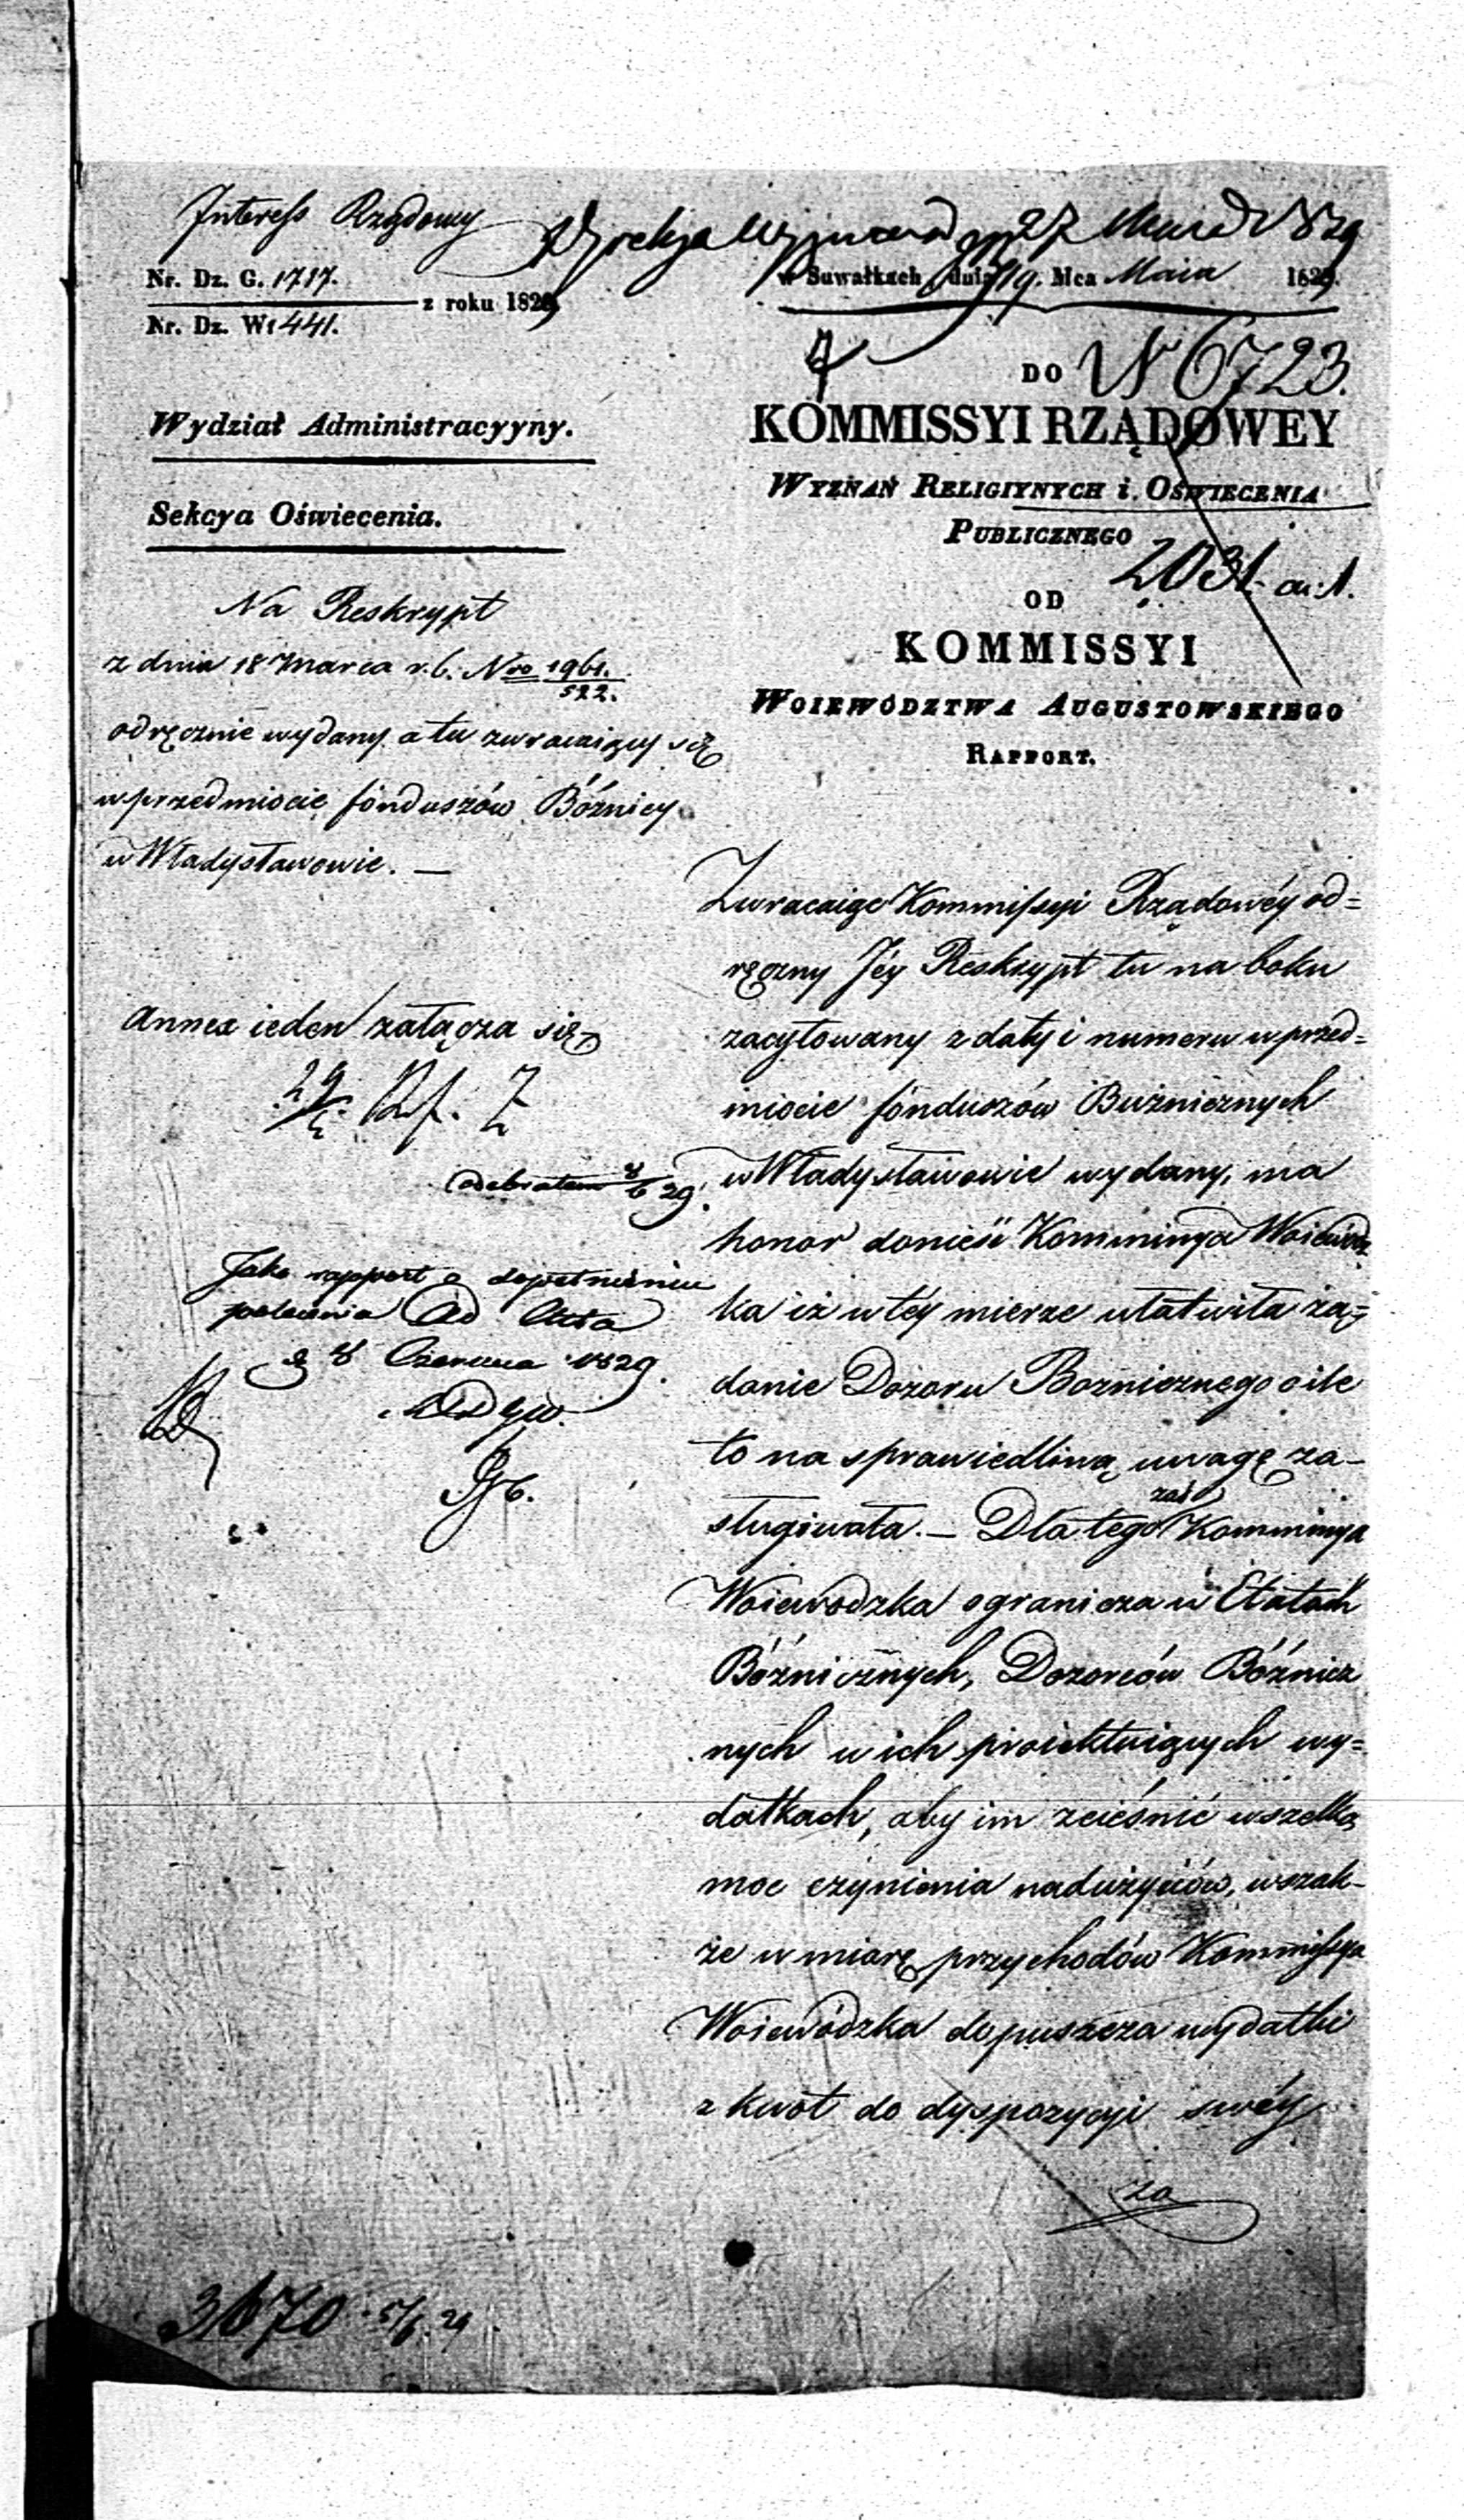 Interess Rządowy
27 Maia 1829
Nr. Dz. G. 1717.
z roku 1829
Nr. Dz. W. 441.
w Suwałkach dnia 19. Mca Maia 1829.
DO N 6723.
KOMMISSYI RZĄDOWEY
WYZNAŃ RELIGIYNYCH i OŚWIECENIA
PUBLICZNEGO
2031. a. 1.
OD
KOMMISSYI
WOIEWÓDZTWA AUGUSTOWSKIEGO
RAPPORT.
Wydział Administracyyny.
Sekcya Oświecenia.
Na Reskrypt
z dnia 18 Marca r. b. Nro 1961./522.
odręcznie wydany a tu zwracaiący się
w przedmiocie fonduszów Bóźnicy
w Władysławowie. —
Annex ieden załącza się
odebrałem 8/6 29.
Jako rapport o dopełnieniu
polecenia Ad Acta
d 8 Czerwca 1829.
Zwracaiąc Kommissyi Rządowéy od=
ręczny Jéy Reskrypt tu na boku
zacytowany z daty i numeru w przed=
miocie fonduszów Buźnicznych
w Władysławowie wydany, ma
honor donieść Kommissya Woiewódz
ka iż w téy mierze ułatwiła żą=
danie Dozoru Boznicznego o ile
to na sprawiedliwą uwagę za-
sługiwała. — Dla tego zaś Kommissya
Woiewodzka ogranicza w Etatach
Bóźnicznych, Dozorców Bóźnicz
nych w ich proiektuiących wy=
datkach, aby im ścieśnić wszelką
moc czynienia nadużyciów, wszak-
że w miarę przychodów Kommissya
Woiewódzka dopuszcza wydatki
z kwot do dyspozycyi swéy
za
3670 5/6. 29